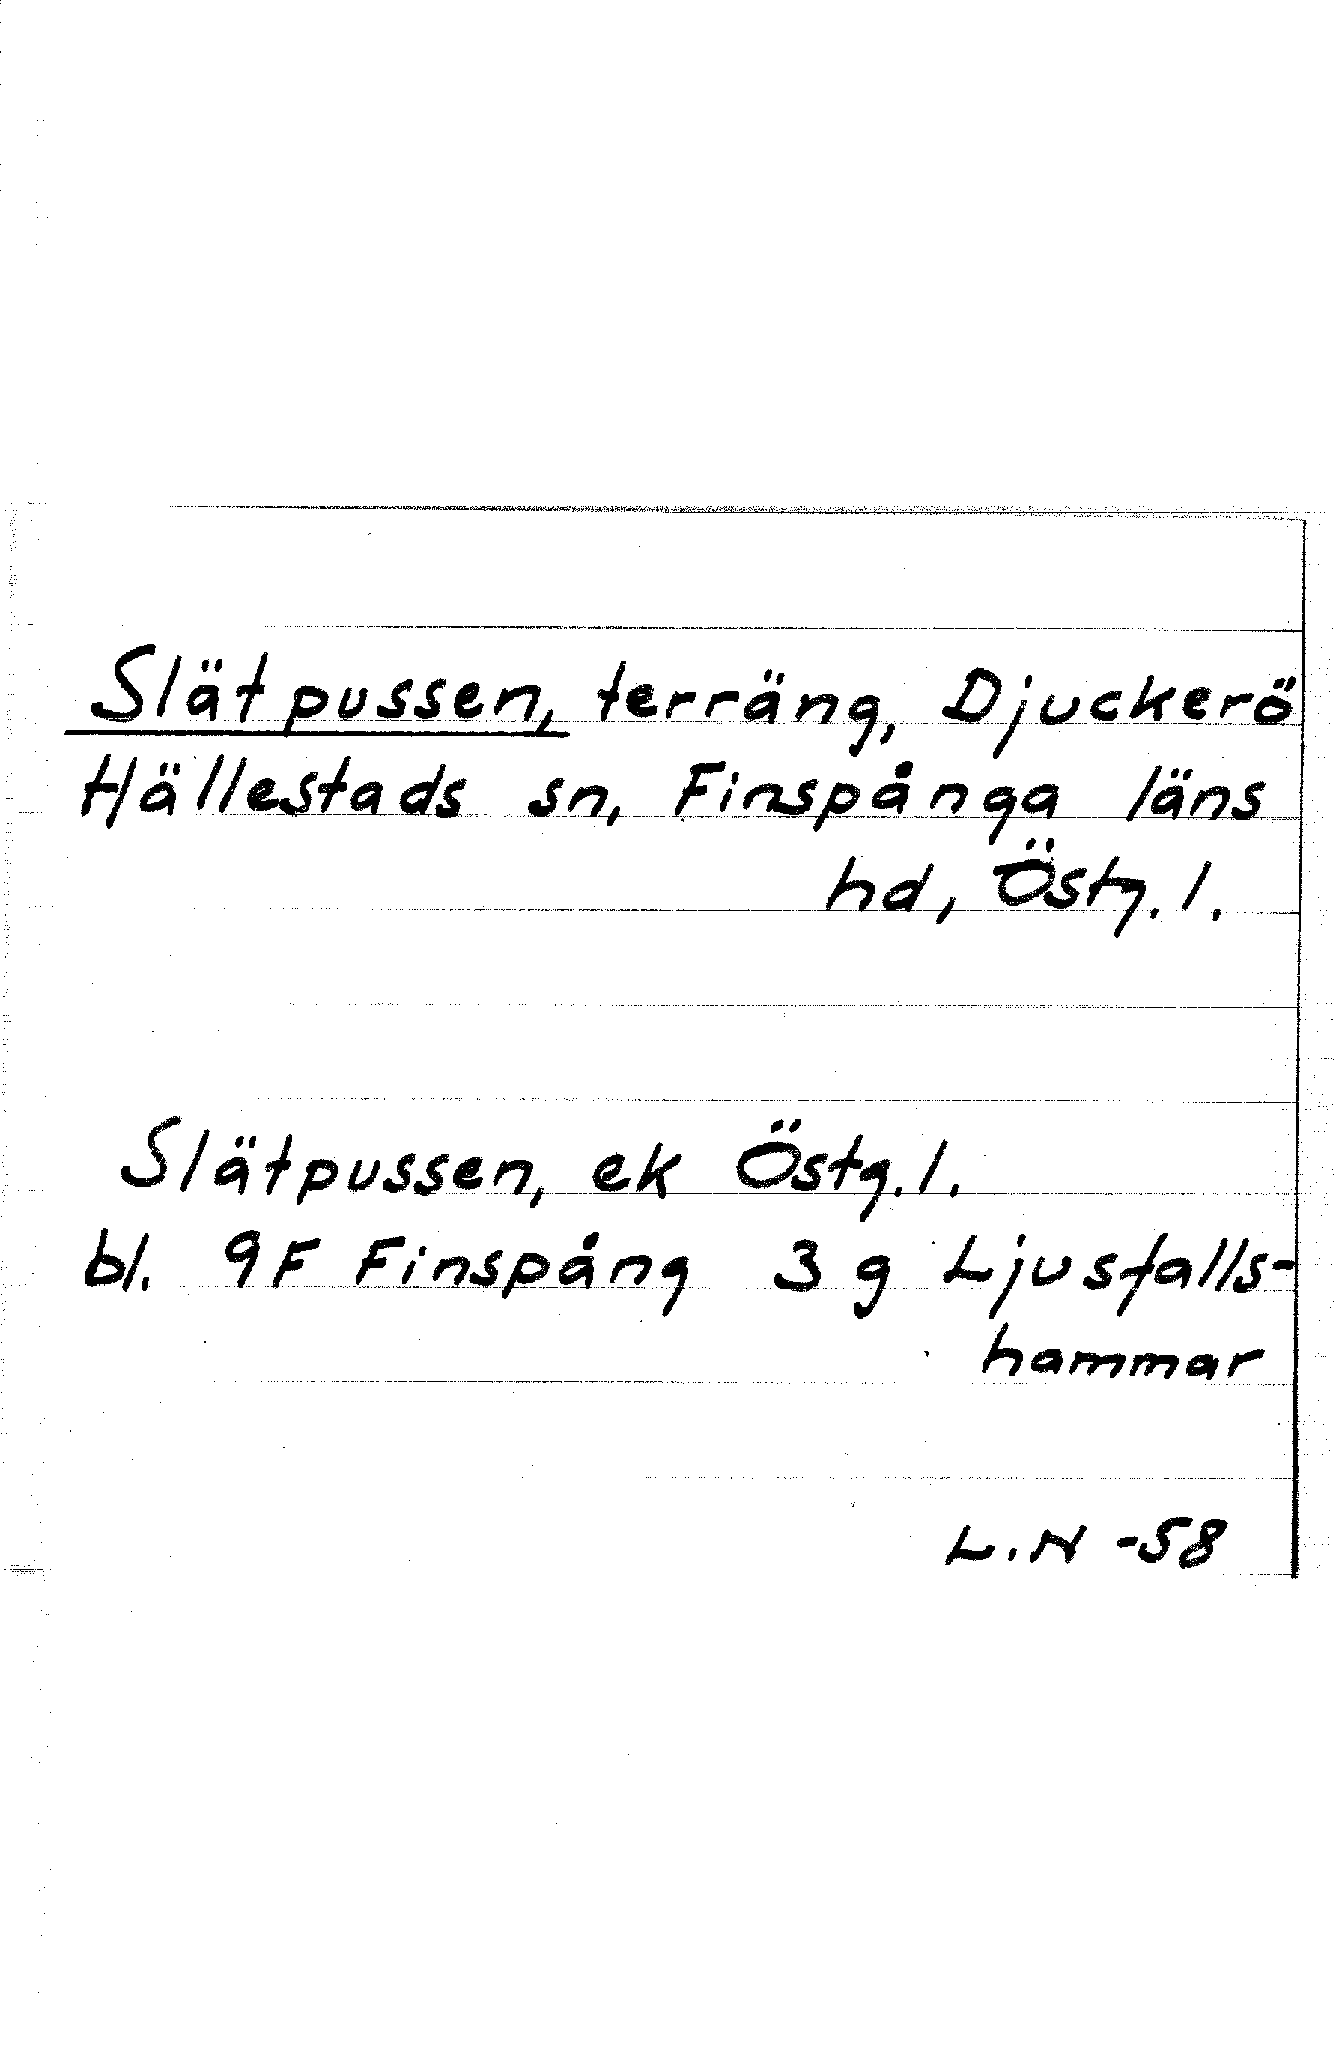 Slätpussen, terräng, Djuckerö
Hällestads sn, Finspånga läns
hd, Östg. l.
Slätpussen, ek Östg. l.
bl. 9F Finspång 3 g Ljusfalls-
hammar
L.N -58